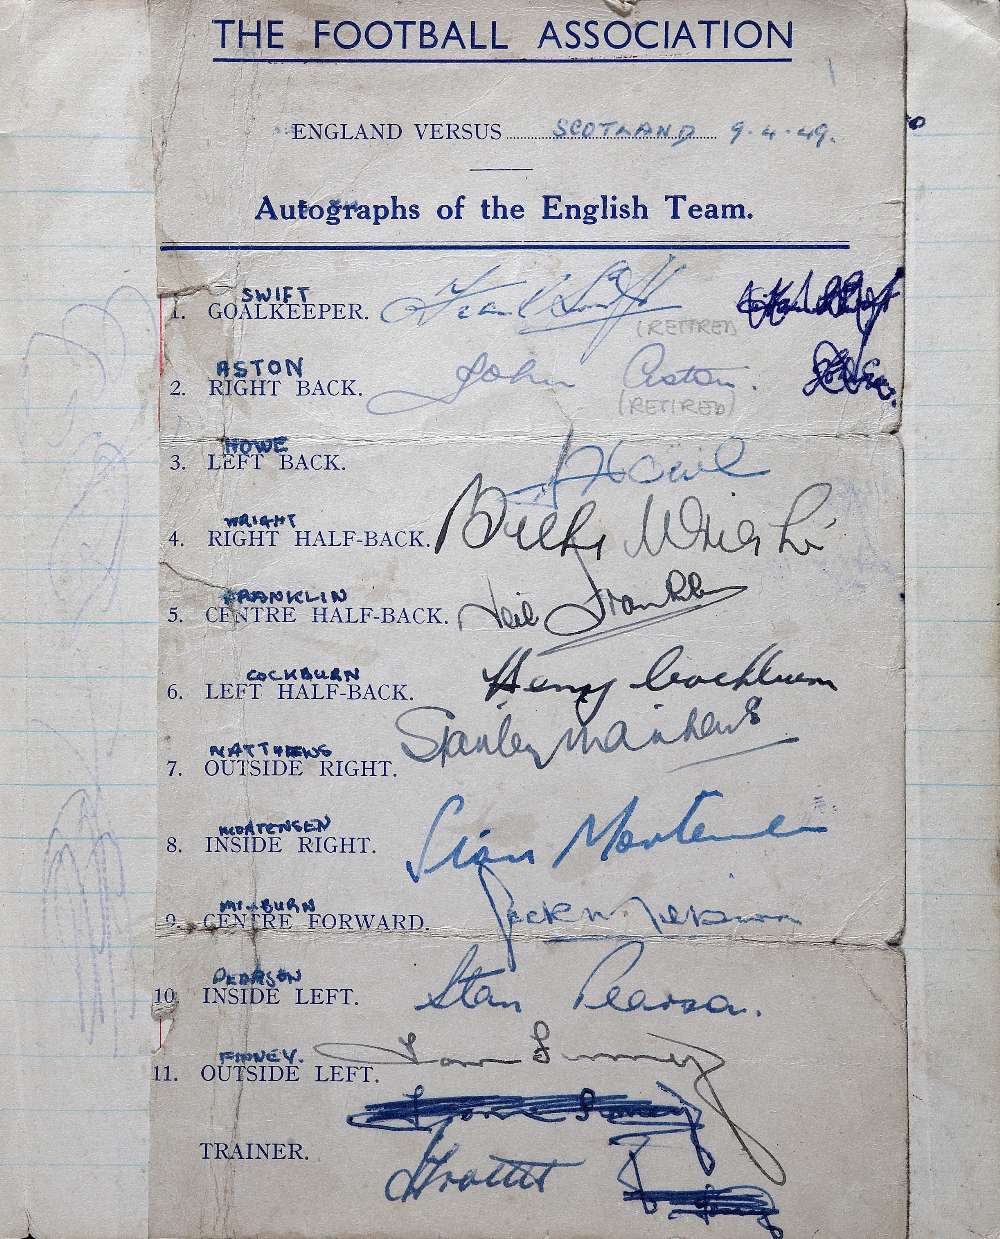 THE FOOTBALL ASSOCIATION
ENGLAND VERSUS SCOTLAND 9.4.49.
Autographs of the English Team.
SWIFT
1. GOALKEEPER. Frank Swift
(RETIRED)
ASTON
2. RIGHT BACK. John Aston.
(RETIRED)
HOWE
3. LEFT BACK. J Howe
WRIGHT
4. RIGHT HALF-BACK. Billy Wright
FRANKLIN
5. CENTRE HALF-BACK. Neil Franklin
COCKBURN
6. LEFT HALF-BACK. Henry Cockburn
MATTHEWS
7. OUTSIDE RIGHT. Stanley Matthews
MORTENSEN
8. INSIDE RIGHT. Stan Mortensen
MILBURN
9. CENTRE FORWARD. Jack Milburn
PEARSON
10. INSIDE LEFT. Stan Pearson.
FINNEY.
11. OUTSIDE LEFT. Tom Finney
TRAINER.